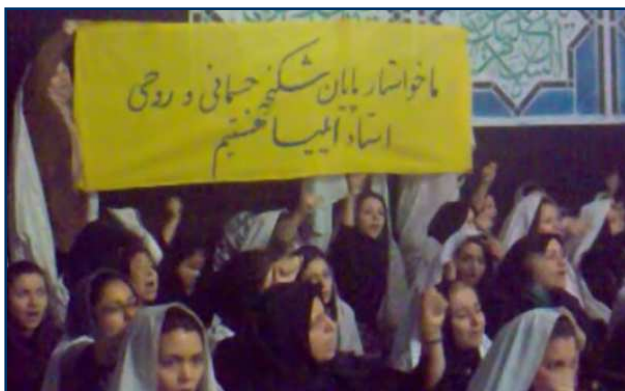 ما خواستار پایان شکنجه جسمانی و روحی
استاد ایلیا هستیم